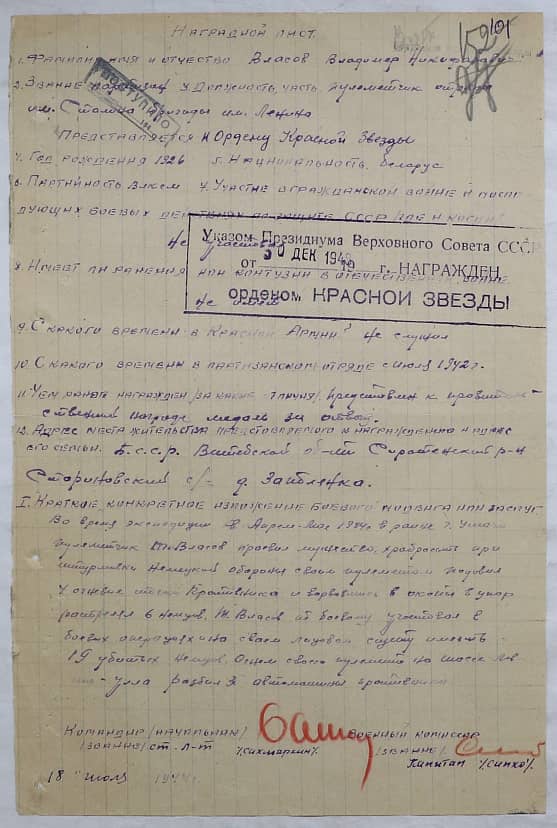 101
152
НАГРАДНОЙ ЛИСТ
1. ФАМИЛИЯ ИМЯ И ОТЧЕСТВО Власов Владимир
2. ЗВАНИЕ партизан 3. ДОЛЖНОСТЬ, ЧАСТЬ пулеметчик отряда
ПОСТУПИЛО
им. Сталина бригады им. Ленина
ПРЕДСТАВЛЯЕТСЯ К Ордену Красной Звезды
4. ГОД РОЖДЕНИЯ 1926 5. НАЦИОНАЛЬНОСТЬ беларус
6. ПАРТИЙНОСТЬ ВЛКСМ 7. УЧАСТИЕ В ГРАЖДАНСКОЙ ВОЙНЕ И ПОСЛЕ-
ДУЮЩИХ БОЕВЫХ ДЕЙСТВИЯХ ПО ЗАЩИТЕ СССР /ГДЕ И КОГДА/
Не участвовал
Указом Президиума Верховного Совета СССР
от 30 ДЕК 1948 г. НАГРАЖДЕН
орденом КРАСНОЙ ЗВЕЗДЫ
8. ИМЕЕТ ЛИ РАНЕНИЯ ИЛИ КОНТУЗИИ В ОТЕЧЕСТВЕННОЙ ВОЙНЕ
Не имеет
9. С КАКОГО ВРЕМЕНИ В КРАСНОЙ АРМИИ? Не служил
10. С КАКОГО ВРЕМЕНИ В ПАРТИЗАНСКОМ ОТРЯДЕ с июля 1942 г.
11. ЧЕМ РАНЕЕ НАГРАЖДЕН /ЗА КАКИЕ ОТЛИЧИЯ/. Представлен к правитель-
ственной награде медаль за отвагу.
12. АДРЕС МЕСТА ЖИТЕЛЬСТВА ПРЕДСТАВЛЯЕМОГО К НАГРАЖДЕНИЮ И АДРЕС
ЕГО СЕМЬИ. Б.С.С.Р. Витебской об-ти Сиротенский р-н
с/с д.
I. КРАТКОЕ КОНКРЕТНОЕ ИЗЛОЖЕНИЕ БОЕВОГО ПОДВИГА ИЛИ ЗАСЛУГ
Во время экспедиции в Апреле-Мае 1944 г. в районе г. Ушачи
пулеметчик т. Власов проявил мужество, храбрость при
штурмовке немецкой обороны своим пулеметом подавил
4 огневые точки Противника и ворвавшись в окопы в упор
расстрелял 6 немцев. Т. Власов участвовал в
боевых операциях и на своем лицевом счету имеет
19 убитых немцев. Огнем своего пулемета на шоссе
Улла разбил 3 автомашины противника
КОМАНДИР /НАЧАЛЬНИК/ ВОЕННЫЙ КОМИССАР
/ЗВАНИЕ/ ст. л-т /Сахмаркин/. /ЗВАНИЕ/
Капитан /Сипко/.
18 июля 1944 г.